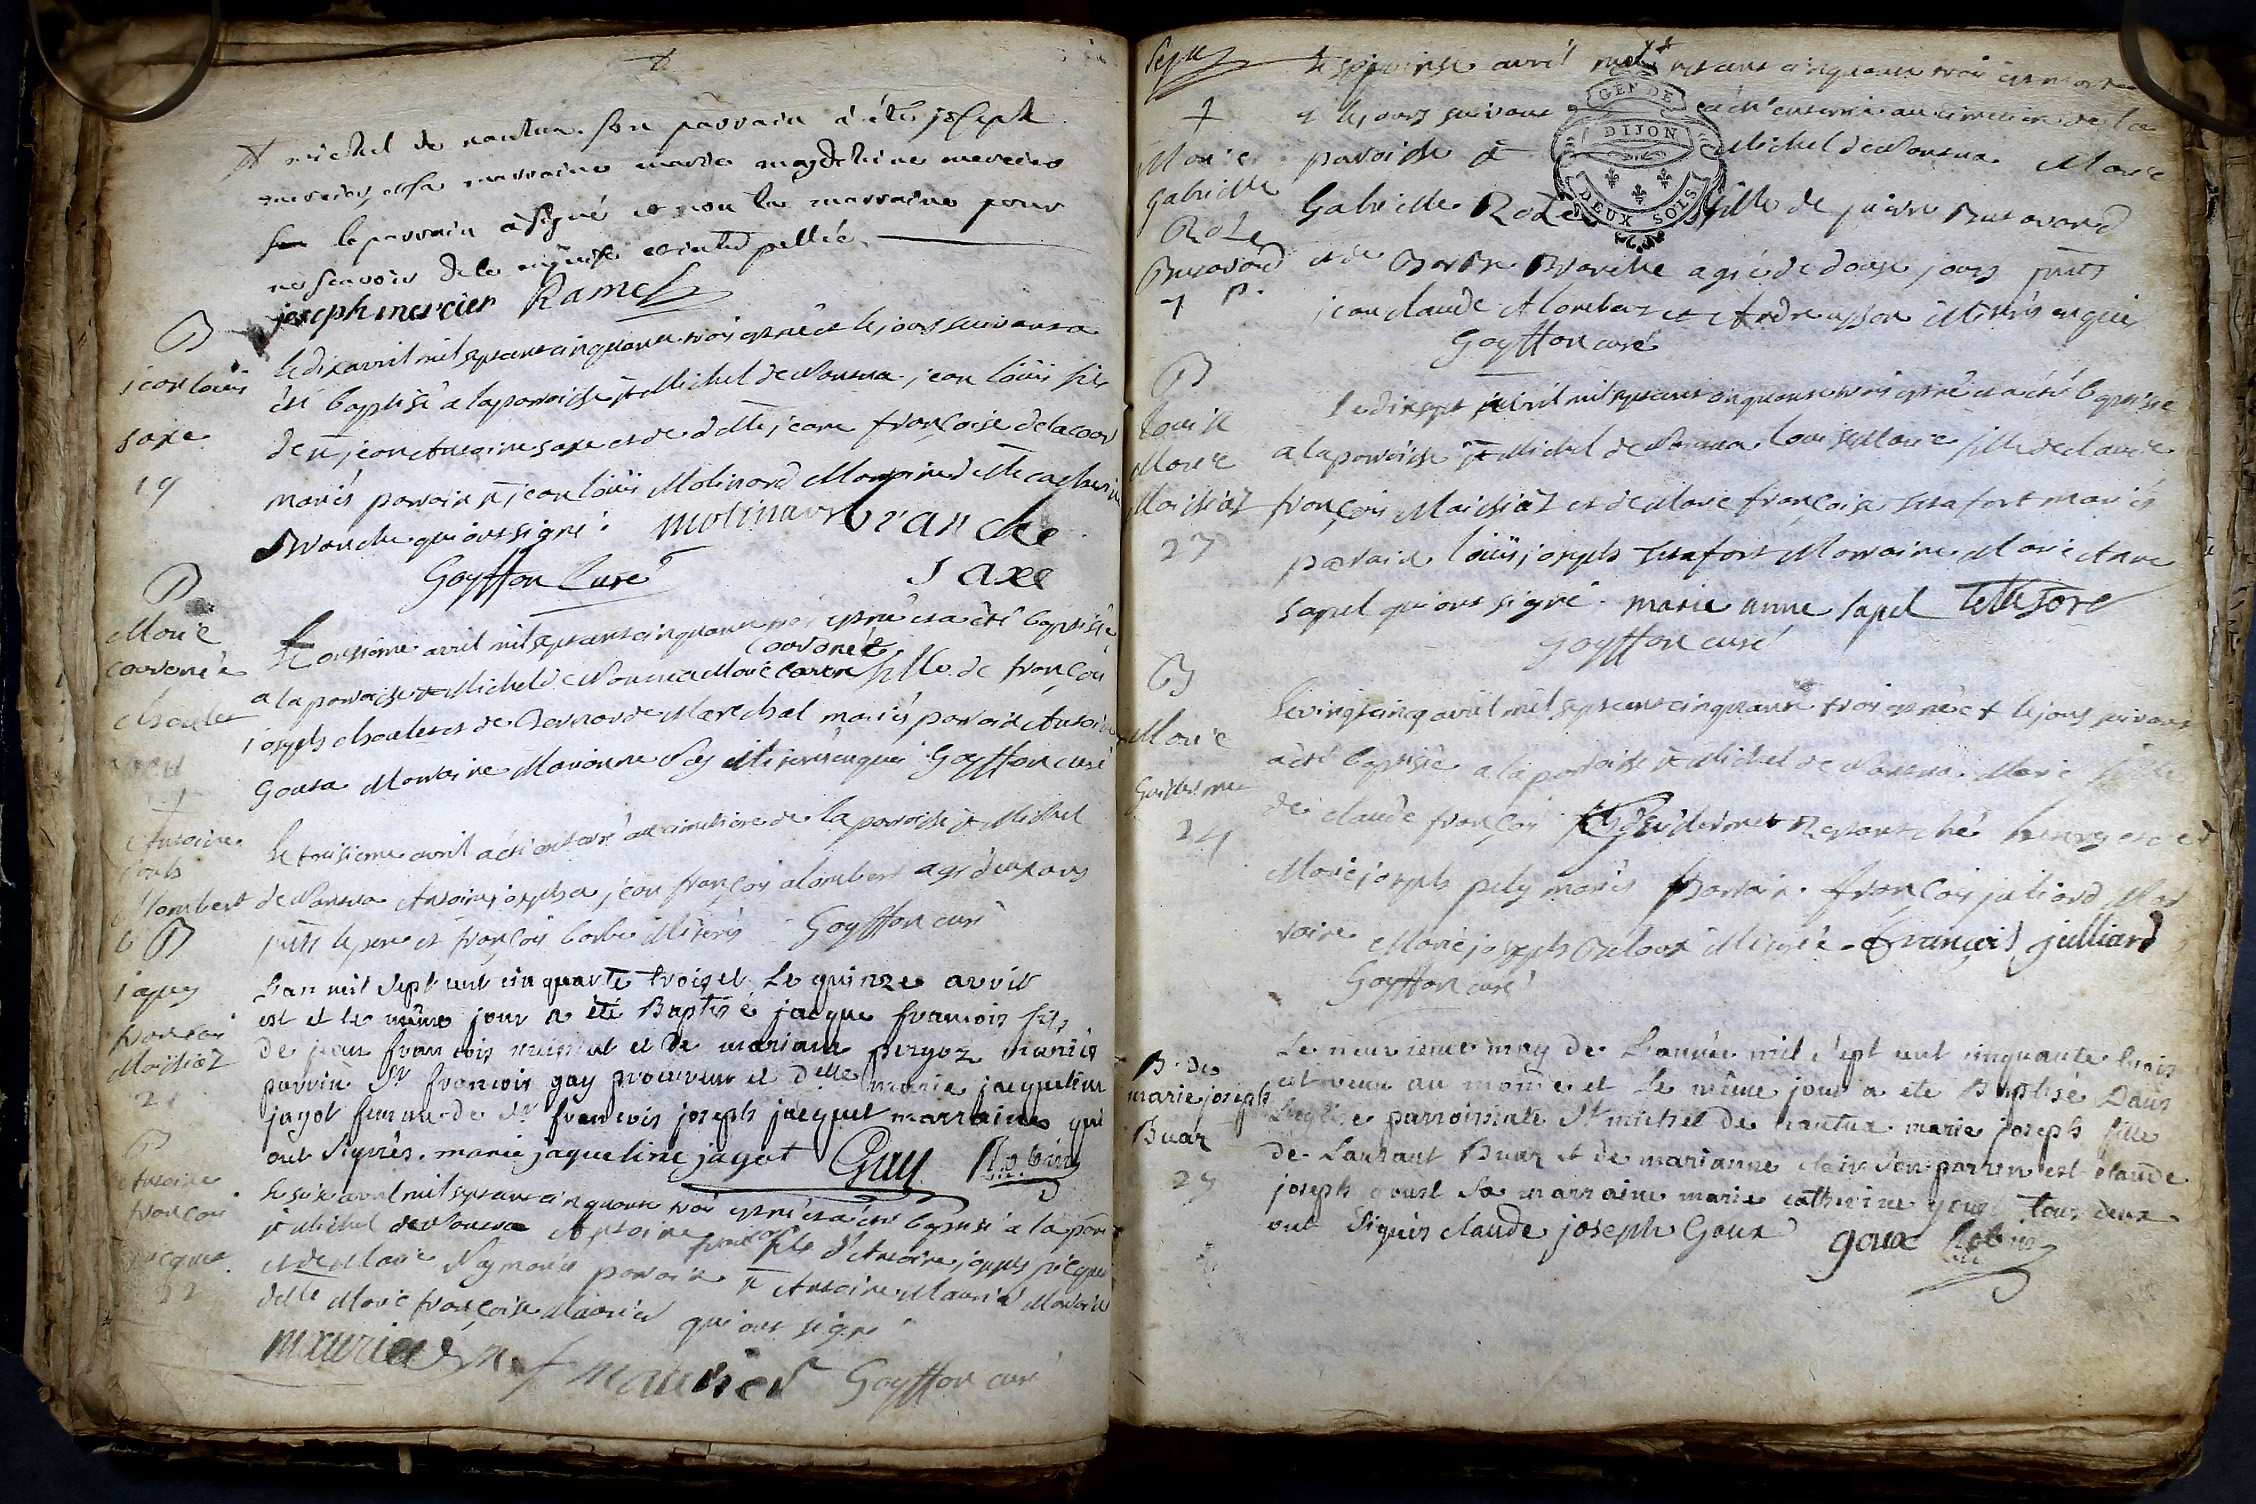 st michel de nantua. son parrain a été joseph
mercier, et sa marraine marie magdeleine mercier
le parrain a signé et non la marraine pour
ne scavoir de ce enquise et interpellée
joseph mercier Ramel
B
jean louis
saxe
19
le dix avril mil sept cent cinquante trois est né et le jour suivant a
été baptisé a la paroisse st Michel de Nantua jean louis fils
de sr jean Antoine saxe et de delle jeane françoise delacour
mariés parrain sr jean louis Molinard Marraine delle catherine
Branche qui ont signé
molinard branche
Goyffon Curé saxe
B
Marie
coronée
choulet
Le onsieme avril mil sept cent cinquante trois est née et a été baptisée
coronée
a la paroisse st Michel de Nantua Marie fille de françois
joseph choulet et de Bernarde Marechal mariés parrain Antoine
Goura Marraine Marianne Roy illiterés enquis Goyffon curé
†
Antoine
joseph
Alombert
6
Le treisieme avril a été enterré au cimetiere de la paroisse st Michel
de Nantua Antoine joseph a jean françois alombert agé de deux ans
pnts le pere et françois borbe illiterés Goyffon curé
B
jaques
françois
Maissiat
21
L'an mil sept cent cinquante trois et le quinze avril
est et le même jour a été Baptisé jacque francois fils
de jean francois maissiat et de mariane pergoz mariés
parrin sr francois gay procureur et delle marie jacqueline
jagot femme de sr francois joseph jacquet marraine qui
ont signés. marie jaqueline jagot Guy Robin
B
Antoine
françois
jacquet
22
Le seise avril mil sept cent cinquante trois est né et a été baptisé a la paroisse
st Michel de Nantua Antoine françois fils d'Antoine joseph jacquet
et de Marie Roy mariés parrain sr Antoine Maurier Marraine
delle Marie françoise Maurier qui ont signé
maurier m. f maurier Goyffon curé
†
Marie
Gabrielle
Rose
Busavard
7
Le seise avril mil sept cent cinquante trois est morte
et le jour suivant a été enterrée au cimetiere de la
paroisse st Michel de Nantua Marie
Gabrielle Rose fille de pierre Busavard
et de Barbe Branche agée de douse jours pnts
jean claude Alombert et André illiterés enquis
Goyffon curé
GEN DE
DIJON
DEUX SOLS
B
Louise
Marie
Maissiat
23
Le dix sept avril mil sept cent cinquante trois est née et a été baptisée
a la paroisse st Michel de Nantua louise Marie fille de claude
françois Maissiat et de Marie françoise Tetafort mariés
parrain louis joseph Tetafort Marraine Marie Anne
sapel qui ont signé. marie anne sapel Tetafort
Goyffon curé
B
Marie
Guillerme
24
Le vingt cinq avril mil sept cent cinquante trois est née et le jour suivant
a été baptisée a la paroisse st Michel de Nantua Marie fille
de claude françois et de
Marie joseph pely mariés Parrain françois juliard Mar
raine Marie joseph illiterée. François Julliard
Goyffon curé
B. de
marie joseph
Buar
25
Le neuvieme may de L'année mil sept cent cinquante trois
est venue au monde et le même jour a été Baptisé Dans
L'eglise parroissiale St michel de nantua marie joseph fille
de Laurant Buar et de marianne clair son parren est claude
joseph goux sa marraine marie catherine goux tous deux
ont signés claude joseph Goux goux Robin